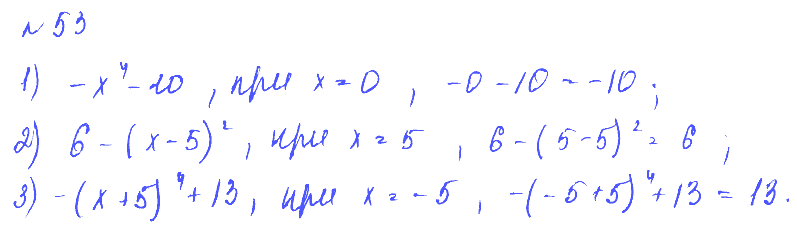 № 53
1) -x⁴-10, при x=0, -0-10=-10;
2) 6-(x-5)², при x=5, 6-(5-5)²=6;
3) -(x+5)⁴+13, при x=-5, -(-5+5)⁴+13=13.